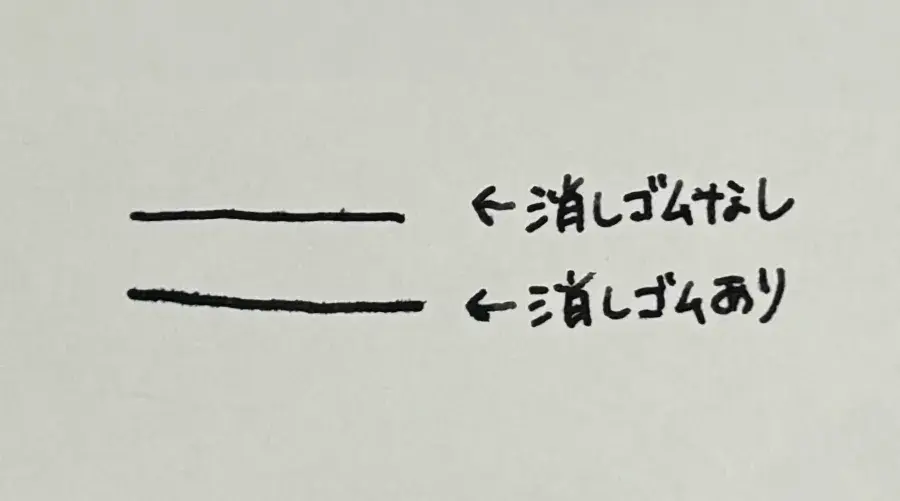 ←消しゴムなし
←消しゴムあり